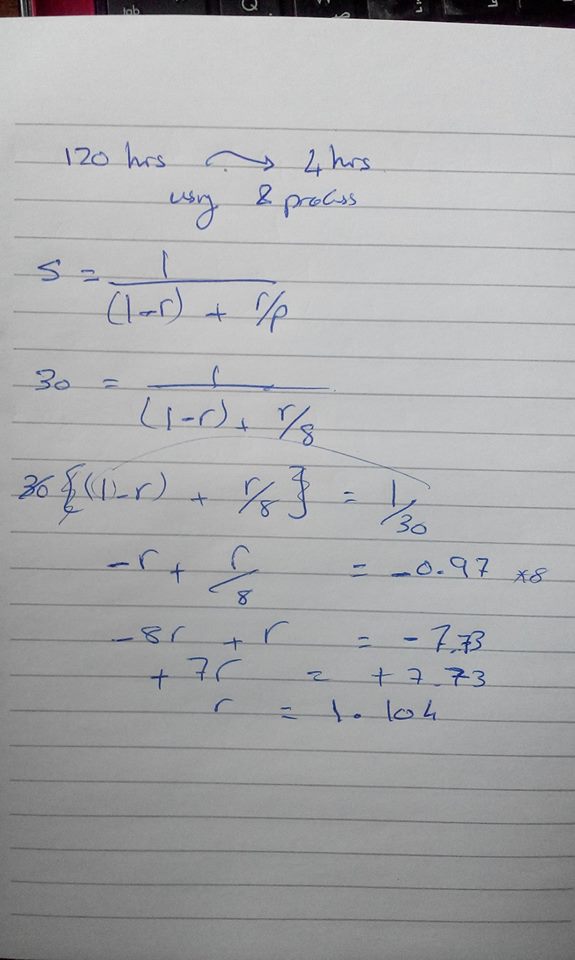 Tab
Q
120 hrs → 4 hrs
using 8 process
S = 1 / (1-r) + r/p
30 = 1 / (1-r) + r/8
30 {(1-r) + r/8} = 1/30
-r + r/8 = -0.97 *8
-8r + r = -7.73
+ 7r = + 7.73
r = 1.104